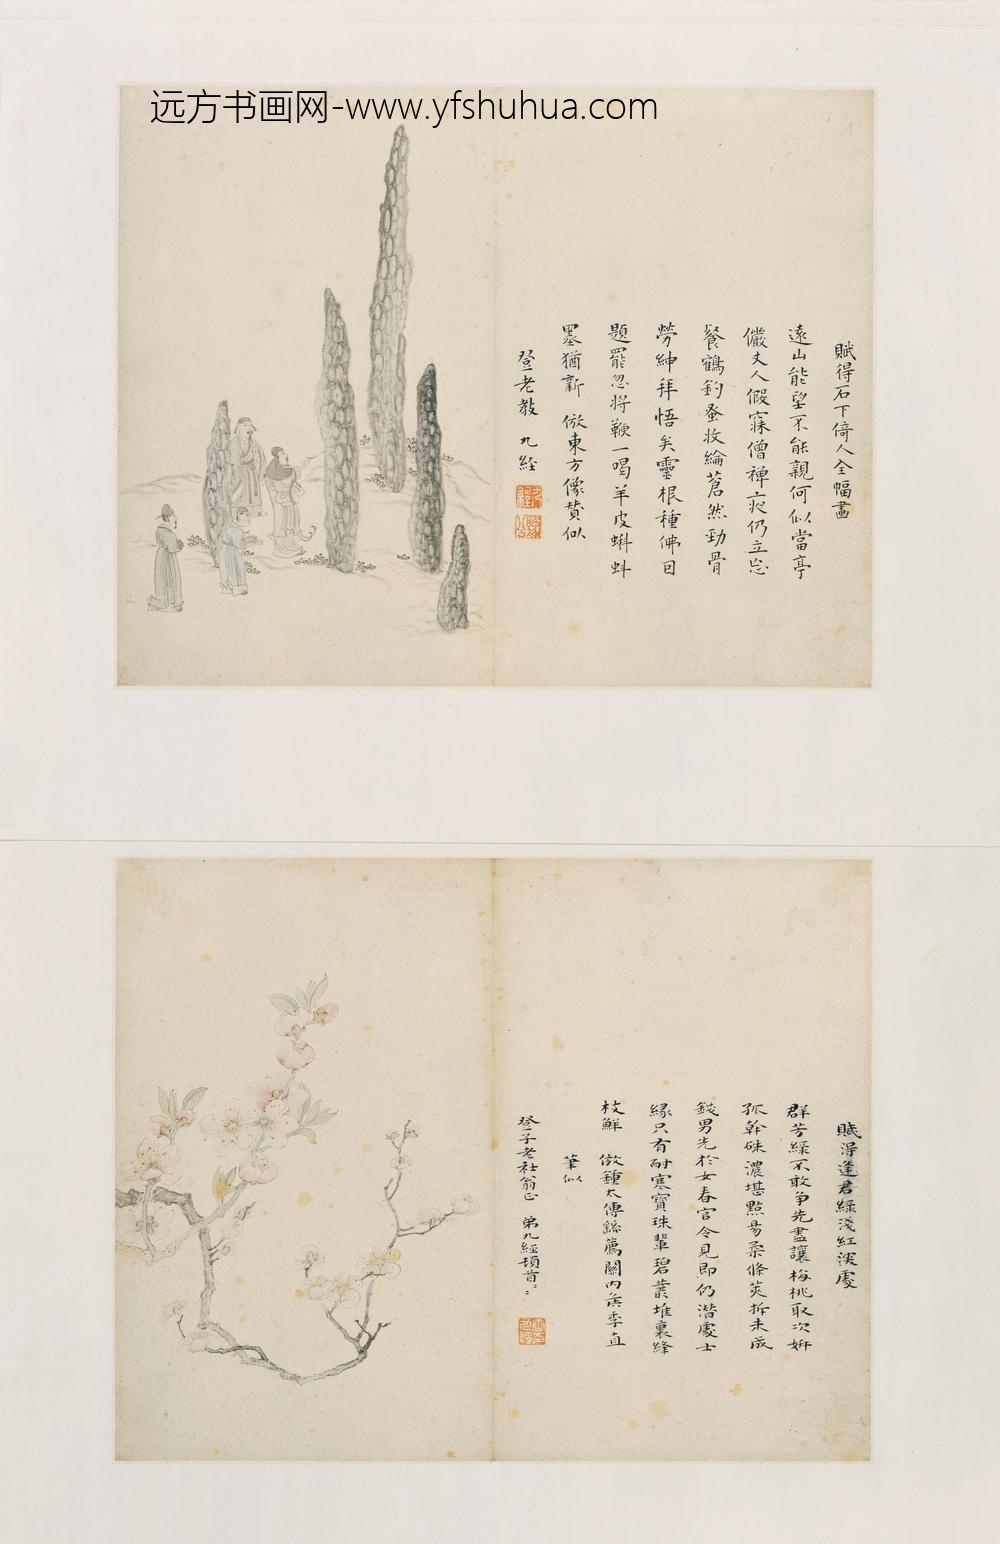 远方书画网-www.yfshuhua.com
賦得石下倚人全幅畫
遠山能望不能親何似當亭
儼丈人假寐僧禅夜仍立忘
餐鶴釣蚤收綸蒼然勁骨
勞紳拜悟矣靈根種佛因
題罷忽將鞭一喝羊皮蝌蚪
墨猶新 倣東方像賛似
登老教 九經
賦得蓬君緑淺紅深處
群芳緑不敢争先盡讓梅桃取次妍
孤幹硃濃堪點易柔條莢拆未成
錢男先於女春官令見即仍潛處士
縁只有耐寒寶珠輩碧叢堆裏絳
枝鮮 倣鍾太傅繇薦關内矦季直
筆似
登子老社翁正 弟九經頓首